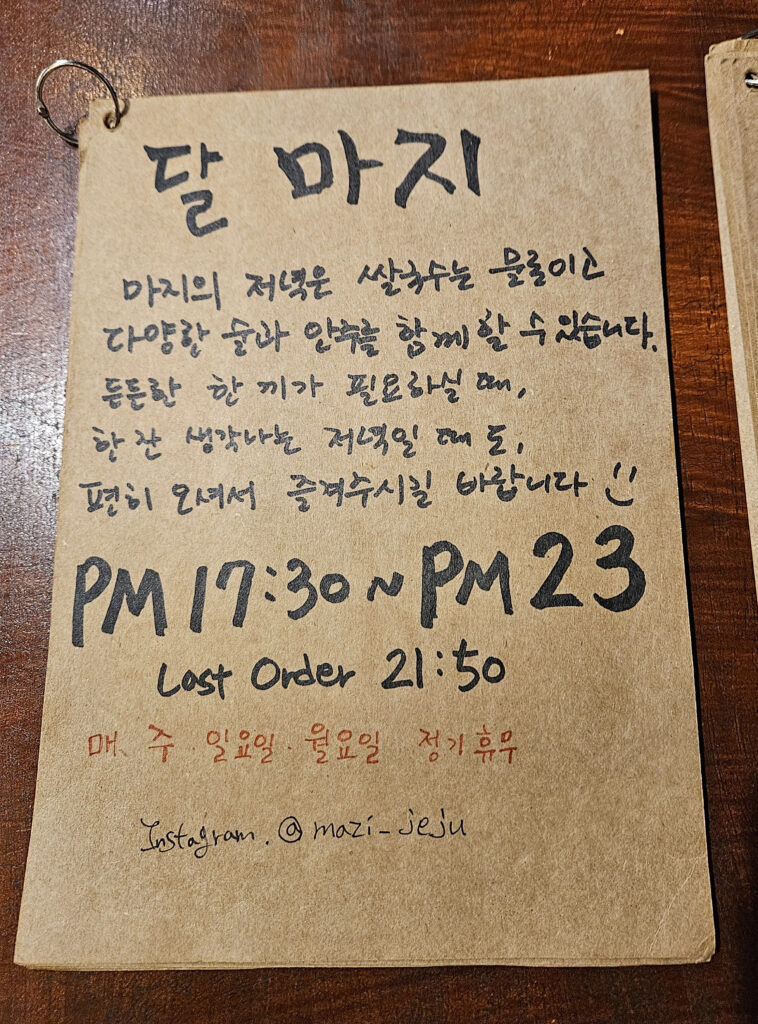 달 마지
마지의 저녁은 쌀국수는 물론이고
다양한 술과 안주를 함께 할 수 있습니다.
든든한 한 끼가 필요하실 때,
한 잔 생각나는 저녁일 때도,
편히 오셔서 즐겨주시길 바랍니다 :)
PM 17:30 ~ PM 23
Last Order 21:50
매 주 일요일·월요일 정기휴무
Instagram. @mazi_jeju